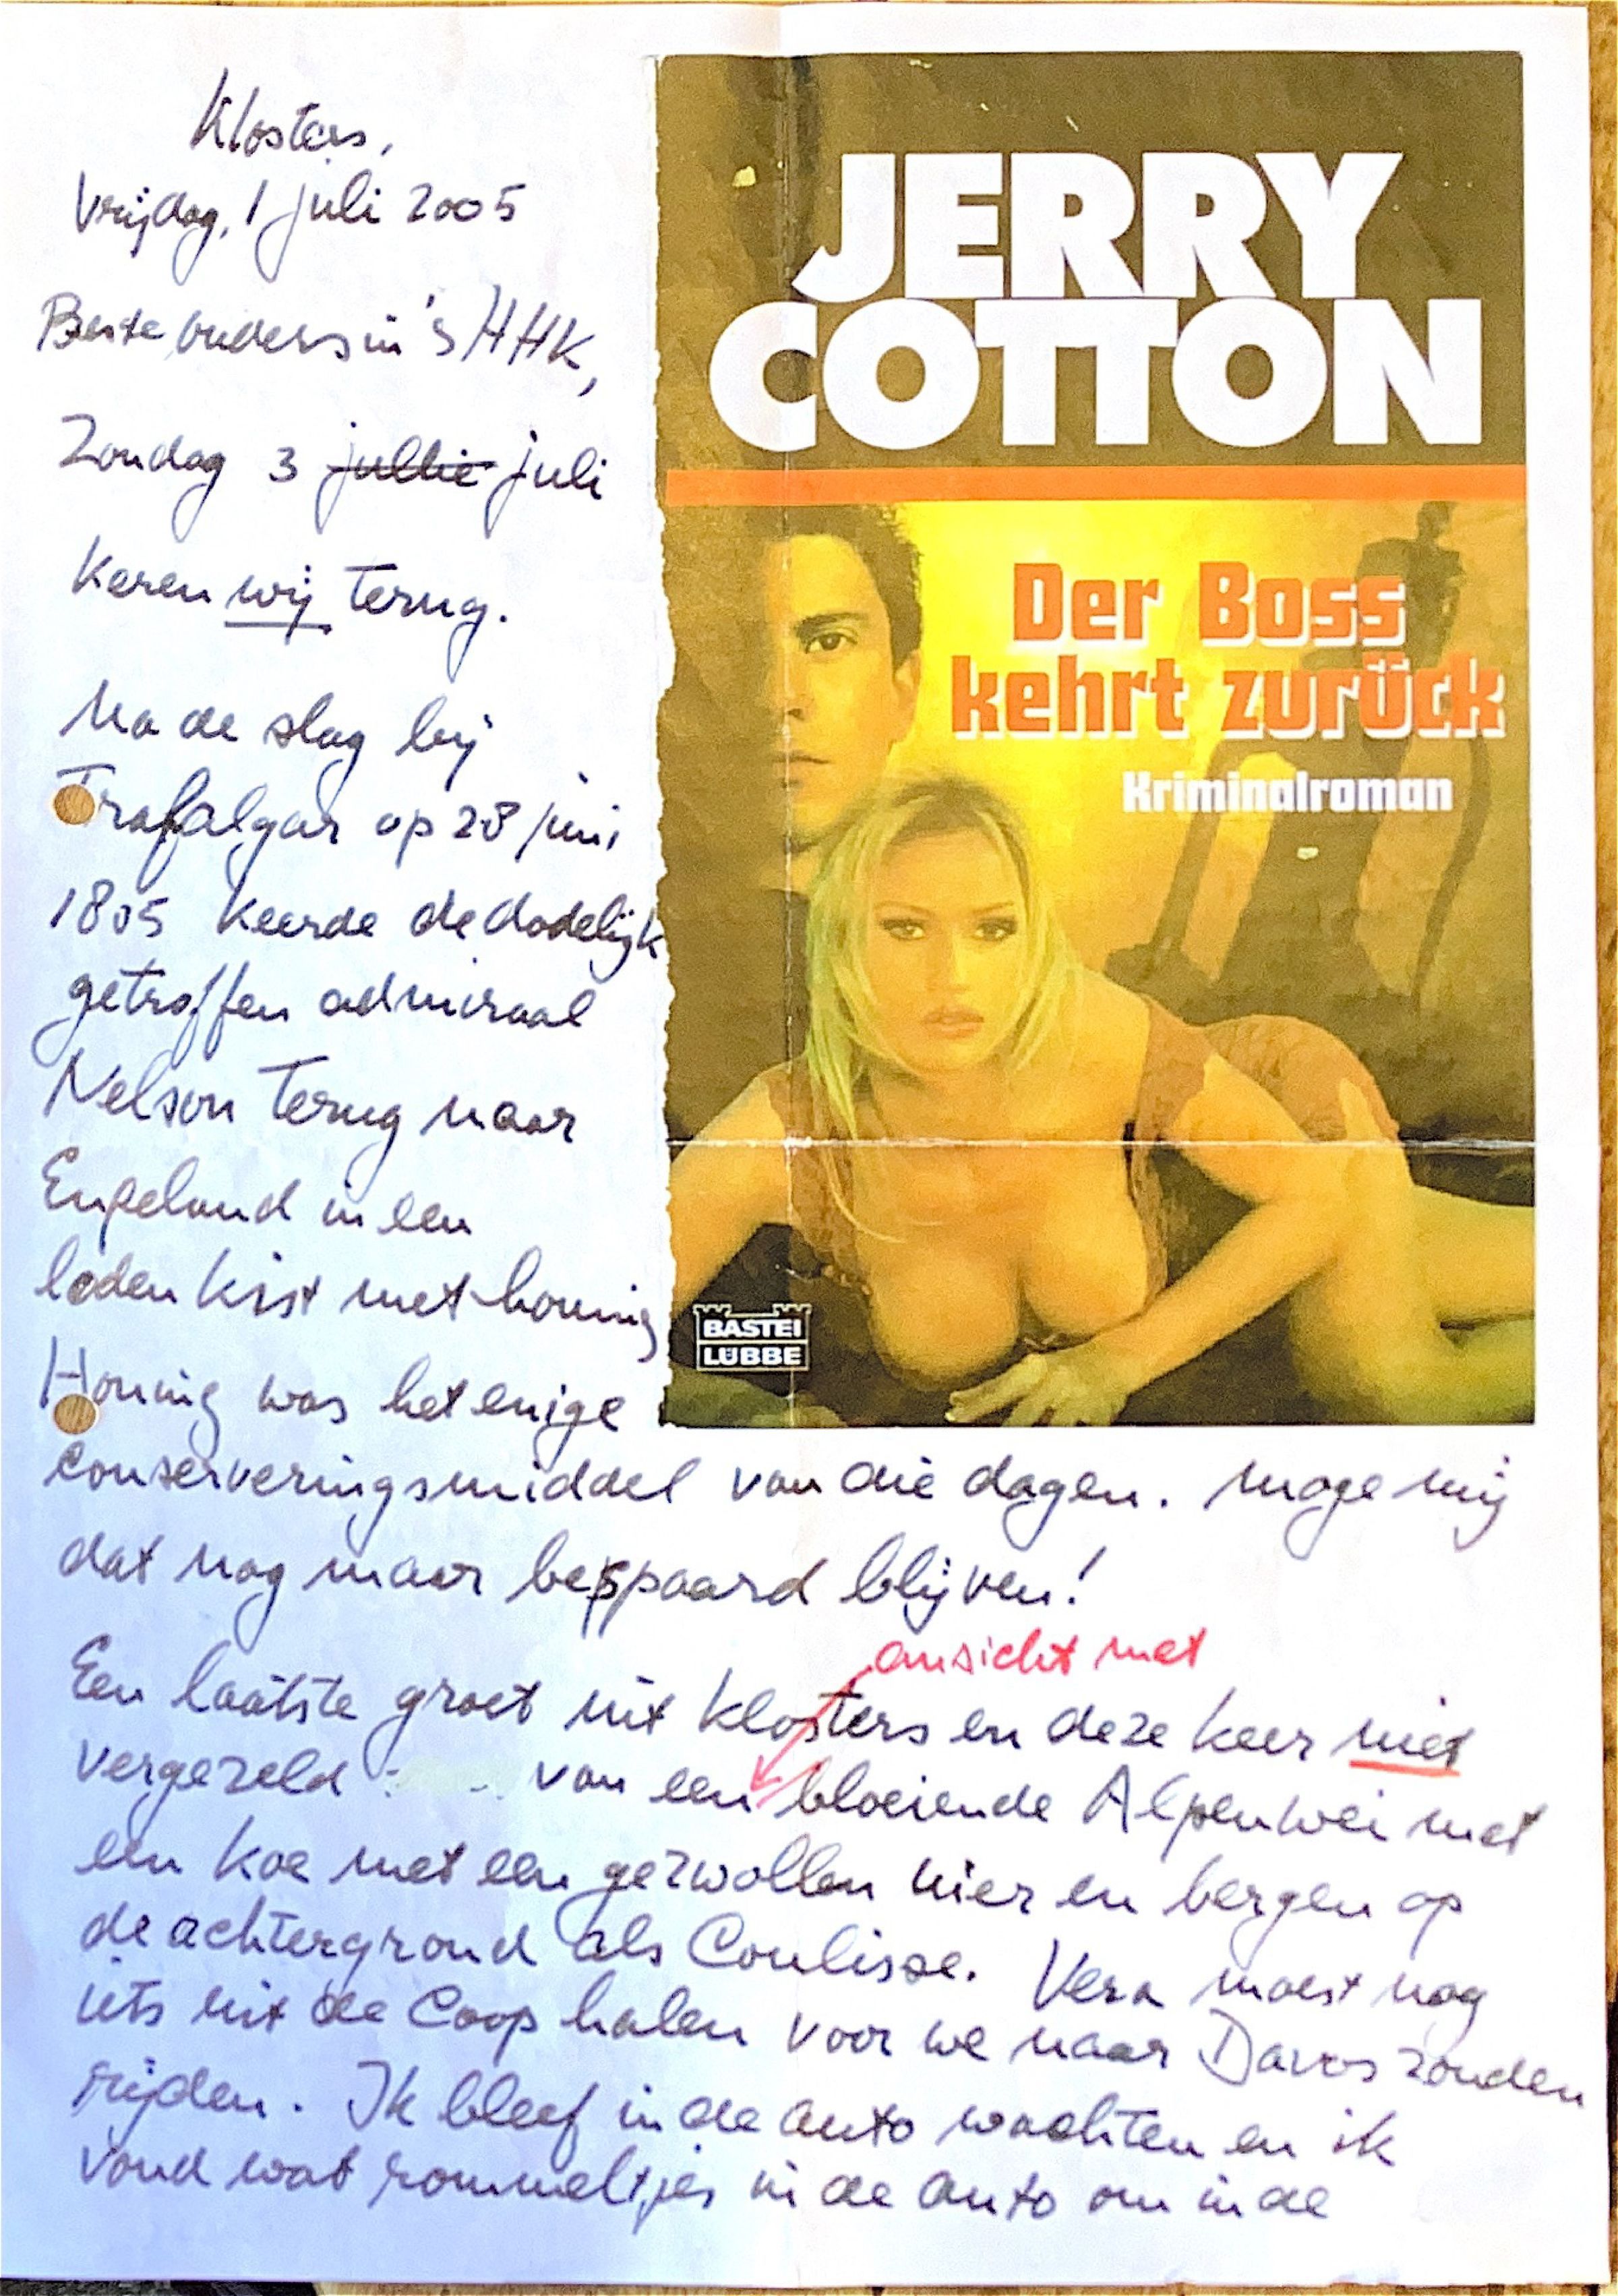 Klosters,
Vrijdag, 1 juli 2005
Beste ouders in 's HHK,
Zondag 3 jullie juli
Keren wij terug.
Na de slag bij
Trafalgar op 28 juni
1805 keerde de dodelijk
getroffen admiraal
Nelson terug naar
Engeland in een
loden kist met honing
Honing was het enige
conserveringsmiddel van die dagen. Moge mij
dat nog maar bespaard blijven!
ansicht met
Een laatste groet uit Klosters en deze keer niet
vergezeld van een bloeiende Alpenwei met
een koe met een gezwollen uier en bergen op
de achtergrond als Coulisse. Vera moest nog
iets uit de Coop halen voor we naar Davos zouden
rijden. Ik bleef in de auto wachten en ik
vond wat rommeltjes in de auto om in de
JERRY
COTTON
Der Boss
kehrt zurück
Kriminalroman
BASTEI
LÜBBE